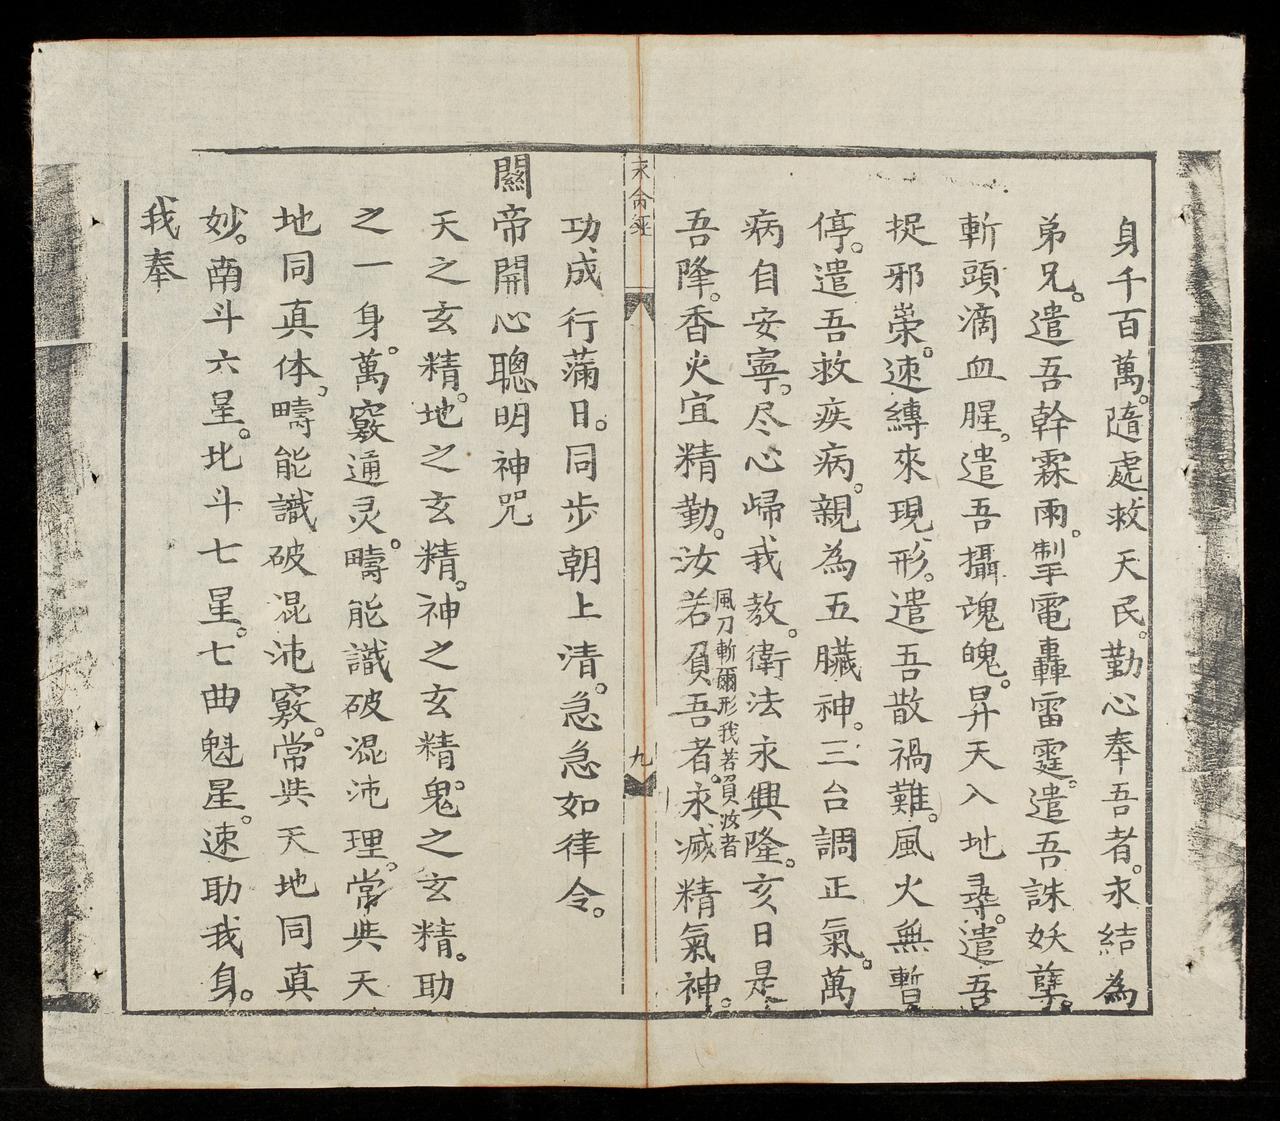 身千百萬。隨處救天民。勤心奉吾者。永結為
弟兄。遣吾幹霖雨。掣電轟雷霆。遣吾誅妖孽。
斬頭滴血腥。遣吾攝魂魄。昇天入地尋。遣吾
捉邪祟。速縛來現形。遣吾散禍難。風火無暫
停。遣吾救疾病。親為五臟神。三台調正氣。萬
病自安寧。尽心歸我教。衛法永興隆。亥日是
吾降。香火宜精勤。汝若負吾者。風刀斬爾形我若負汝者永滅精氣神。
永命經
九
功成行蒲日。同步朝上清。急急如律令。
關帝開心聰明神咒
天之玄精。地之玄精。神之玄精。鬼之玄精。助
之一身。萬竅通灵。疇能識破混沌理。常與天
地同真体。疇能識破混沌竅。常與天地同真
妙。南斗六星。北斗七星。七曲魁星。速助我身。
我奉